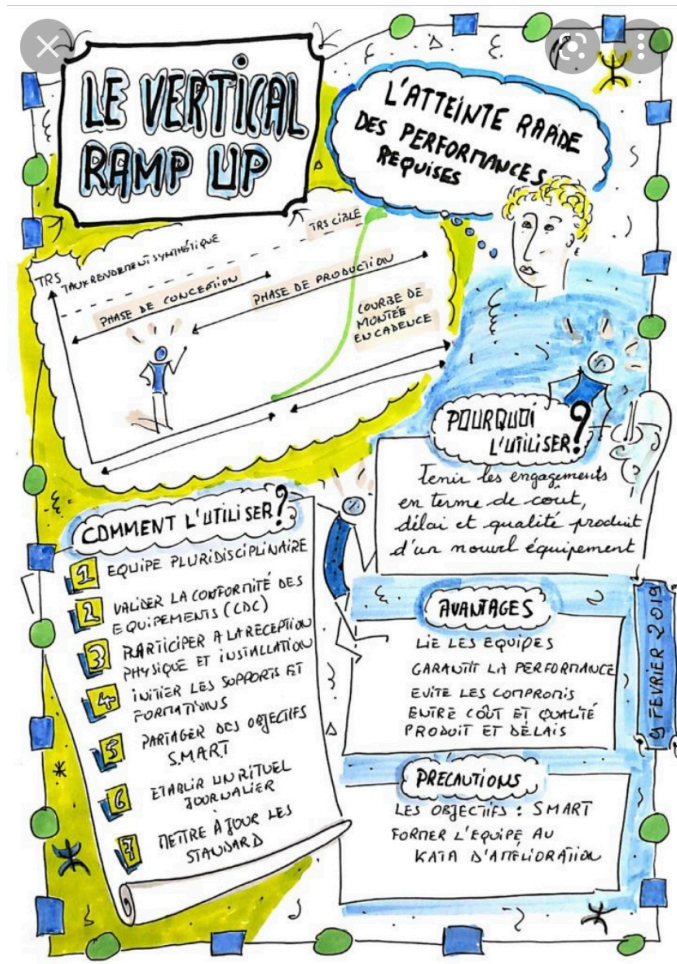 LE VERTICAL
RAMP UP
L'ATTEINTE RAPIDE
DES PERFORMANCES
REQUISES
TRS
TAUX RENDEMENT SYNTHÉTIQUE
TRS CIBLE
PHASE DE CONCEPTION
PHASE DE PRODUCTION
COURBE DE
MONTÉE
EN CADENCE
POURQUOI
L'UTILISER?
Tenir les engagements
en terme de coût,
délai et qualité produit
d'un nouvel équipement
COMMENT L'UTILISER?
1 EQUIPE PLURIDISCIPLINAIRE
2 VALIDER LA CONFORMITÉ DES
EQUIPEMENTS (CDC)
3 PARTICIPER A LA RÉCEPTION
PHYSIQUE ET INSTALLATION
4 INITIER LES SUPPORTS ET
FORMATIONS
5 PARTAGER DES OBJECTIFS
S.MART
6 ETABLIR UN RITUEL
JOURNALIER
7 METTRE À JOUR LES
STANDARD
AVANTAGES
LIE LES EQUIPES
GARANTIT LA PERFORMANCE
EVITE LES COMPROMIS
ENTRE COÛT ET QUALITÉ
PRODUIT ET DÉLAIS
9 FEVRIER 2019
PRÉCAUTIONS
LES OBJECTIFS : SMART
FORMER L'EQUIPE AU
KATA D'AMÉLIORATION